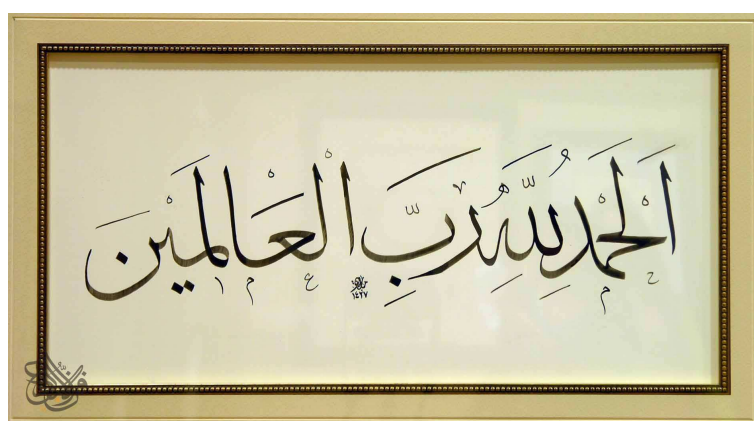 اَلْحَمْدُ لِلّٰهِ رَبِّ الْعَالَمِيْنَ
١٤٢٧